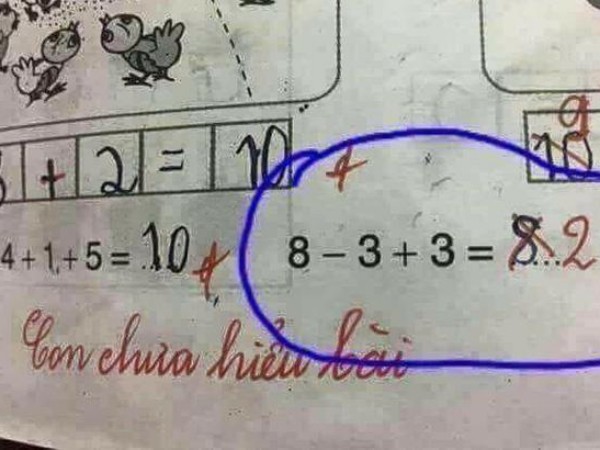 9
+ 2 = 10
10
4 + 1 + 5 = 10
8 – 3 + 3 = 8 2
Con chưa hiểu bài